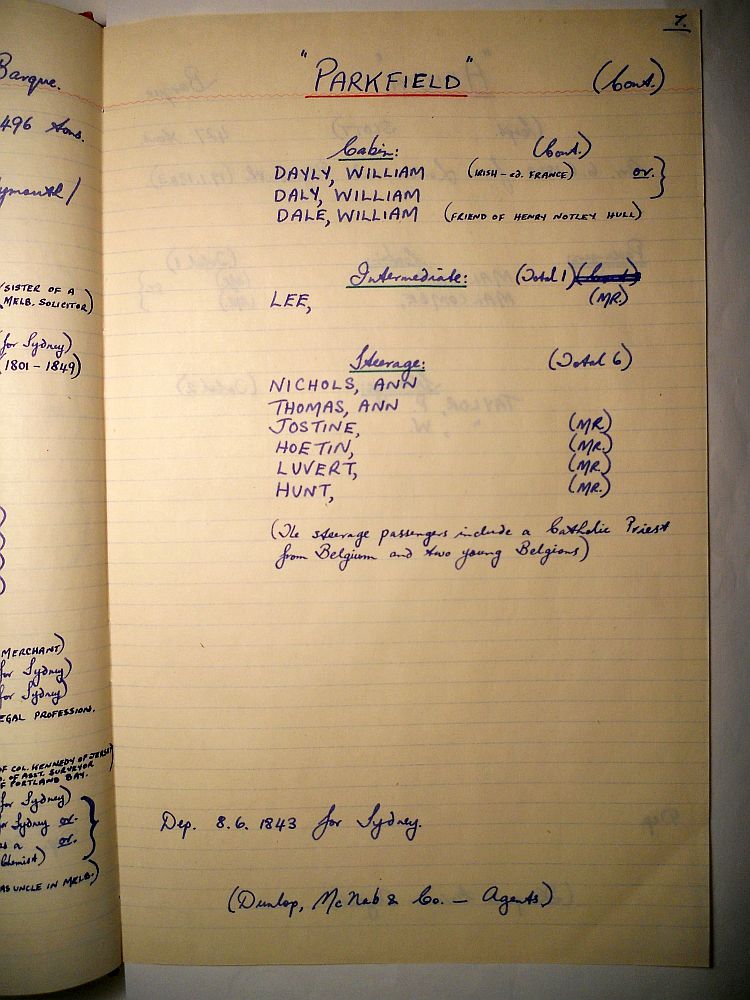 Barque.
496 tons.
(SISTER OF A
MELB. SOLICITOR)
(for Sydney)
(1801 - 1849)
MERCHANT)
for Sydney)
for Sydney)
LEGAL PROFESSION.
OF COL. HENNEDY OF JERSEY
OF ASST. SURVEYOR
OF PORTLAND BAY.
for Sydney)
for Sydney or.
as a or.
Chemist)
HAS UNCLE IN MELB.)
7.
"PARKFIELD" (Cont.)
Cabin: (Cont.)
DAYLY, WILLIAM (IRISH - ed. FRANCE) or.
DALY, WILLIAM
DALE, WILLIAM (FRIEND OF HENRY NOTLEY HULL)
Intermediate: (Total 1) (Cont.)
LEE, (MR.)
Steerage: (Total 6)
NICHOLS, ANN
THOMAS, ANN
JOSTINE, (MR.)
HOETIN, (MR.)
LUVERT, (MR.)
HUNT, (MR.)
(The steerage passengers include a Catholic Priest
from Belgium and two young Belgians)
Dep. 8.6.1843 for Sydney.
(Dunlop, McNab & Co. — Agents)